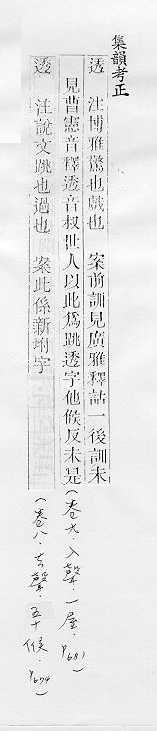 集韻考正
透　注博雅驚也嬈也　案前訓見廣雅釋詁一後訓未
見曹憲音釋透音叔世人以此爲跳透字他候反未是
（卷九．入聲．一屋．P681）
透　注說文跳也過也　案此係新坿字
（卷八．去聲．五十候．P674）